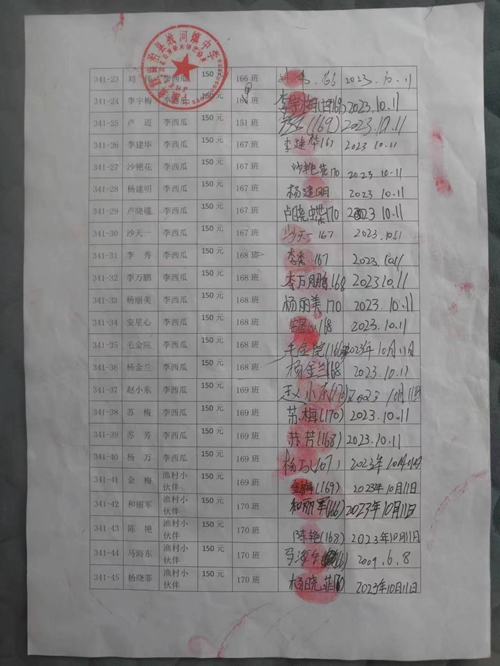 341-23 刘 李西瓜 150元 166班 166 2023.10.11
341-24 李宇梅 150元 166班 李宇梅 2023.10.11
341-25 卢 迈 李西瓜 150元 151班 (169) 2023.10.11
341-26 李建华 李西瓜 150元 167班 李建华167 2023.10.11
341-27 沙艳花 李西瓜 150元 167班 沙艳花170 2023.10.11
341-28 杨建明 李西瓜 150元 167班 杨建明 2023.10.11
341-29 卢晓蝶 李西瓜 150元 167班 卢晓蝶170 2023.10.11
341-30 沙天一 李西瓜 150元 167班 沙天一167 2023.10.11
341-31 李 秀 李西瓜 150元 168班 李秀167 2023.10.11
341-32 李万鹏 李西瓜 150元 168班 李万鹏168 2023.10.11
341-33 杨丽美 李西瓜 150元 168班 杨丽美170 2023.10.11
341-34 安星心 李西瓜 150元 168班 168 2023.10.11
341-35 毛金院 李西瓜 150元 168班 毛金院(166 2023年10月11日
341-36 杨金兰 李西瓜 150元 168班 杨金兰168 2023.10.11
341-37 赵小东 李西瓜 150元 169班 赵小东 2023.10月11日
341-38 苏 梅 李西瓜 150元 169班 苏梅(170) 2023.10.11
341-39 苏 芳 李西瓜 150元 169班 苏芳(168) 2023.10.11
341-40 杨 万 李西瓜 150元 169班 杨万(167) 2023年10月
341-41 金 梅 渔村小伙伴 150元 169班 (169) 2023年10月11日
341-42 和丽军 渔村小伙伴 150元 170班 和丽军(166) 2023年10月11日
341-43 陈 艳 渔村小伙伴 150元 170班 陈艳(168) 2023年10月11日
341-44 马海东 渔村小伙伴 150元 170班 2009.6.8
341-45 杨晓菲 渔村小伙伴 150元 170班 杨晓菲170 2023年10月11日